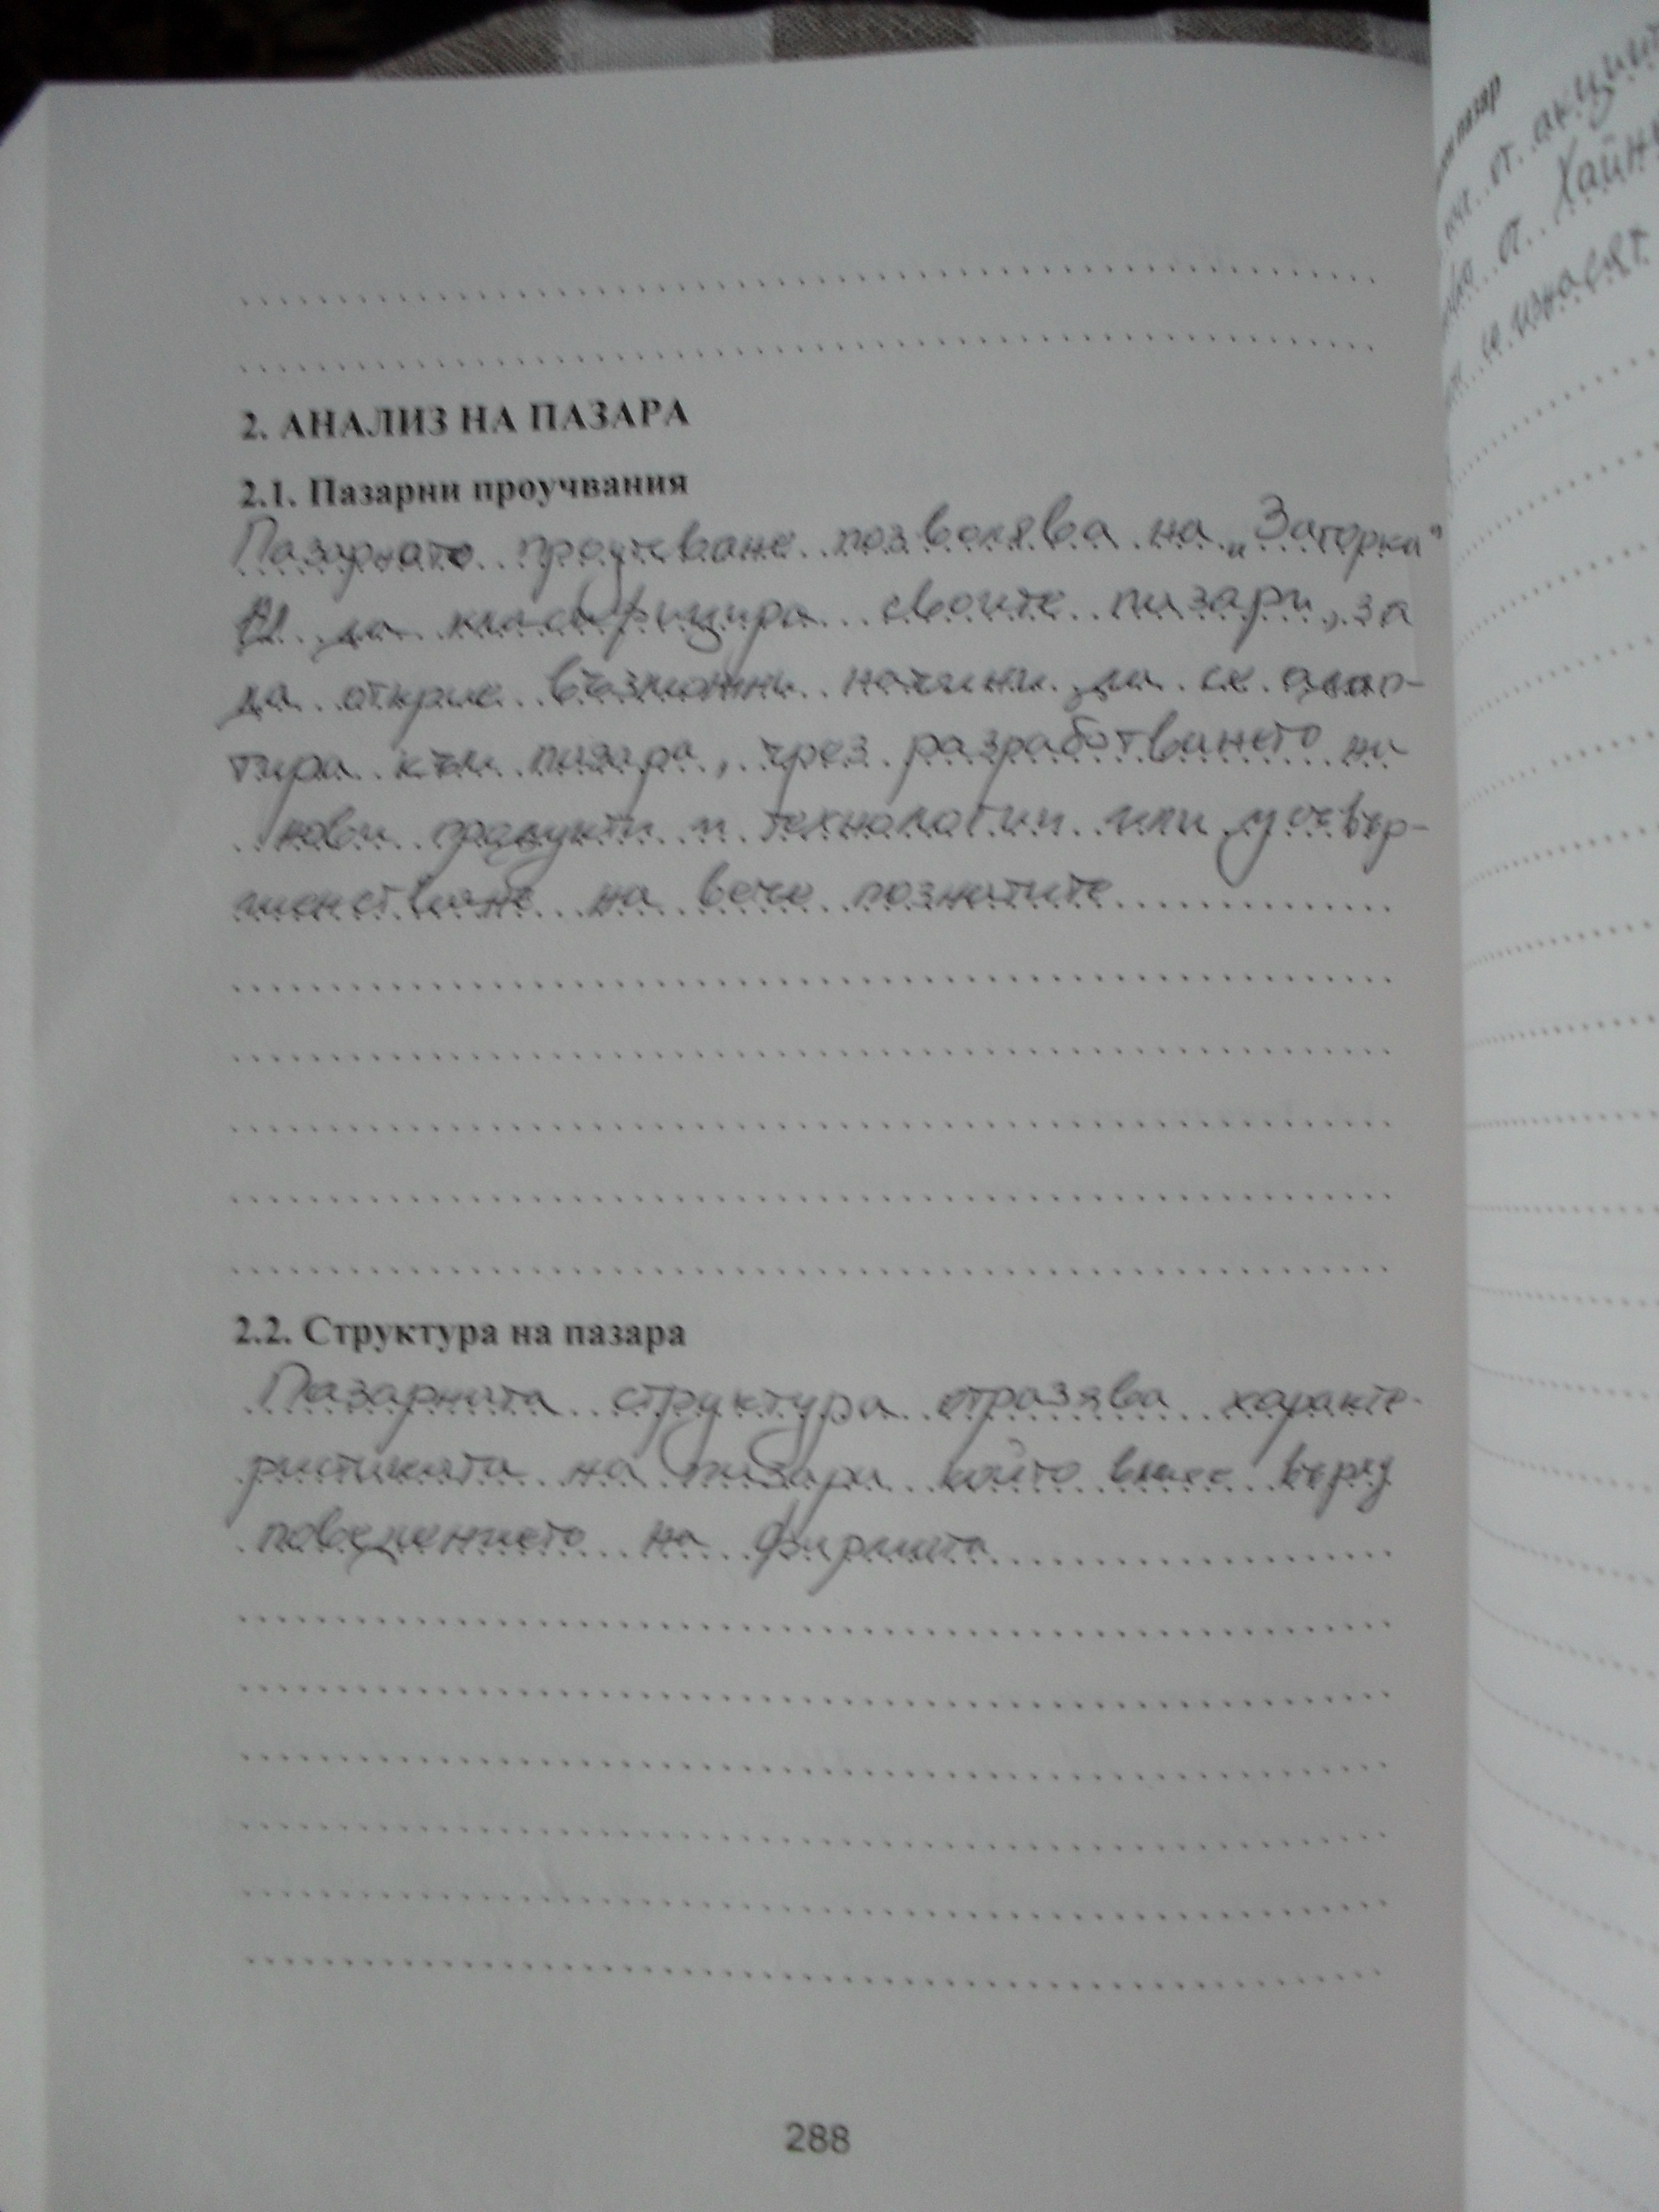 2. АНАЛИЗ НА ПАЗАРА
2.1. Пазарни проучвания
Пазарното проучване позволява на „Загорка"
АД да класифицира своите пазари, за
да открие възможни начини да се адап-
тира към пазара, чрез разработването на
нови продукти и технологии или усъвър-
шенстване на вече познатите
2.2. Структура на пазара
Пазарната структура отразява характе-
ристиката на пазара който влияе върху
поведението на фирмата
288
пазар
от акции
от Хайн
се изнасят